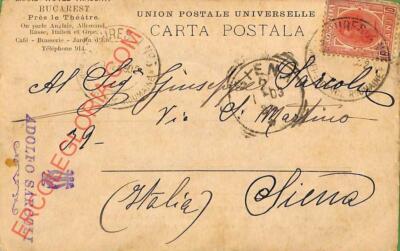 BUCAREST
Près le Théatre.
On parle Anglais, Allemand,
Russe, Italien et Grec.
Café - Brasserie - Jardin d'Été
Téléphone 914.
UNION POSTALE UNIVERSELLE
CARTA POSTALA
Al Sig. Giuseppe
Via S. Martino
39-
(Italia) Siena
ADOLFO
SIENA
ERCOLEGLORIA.COM